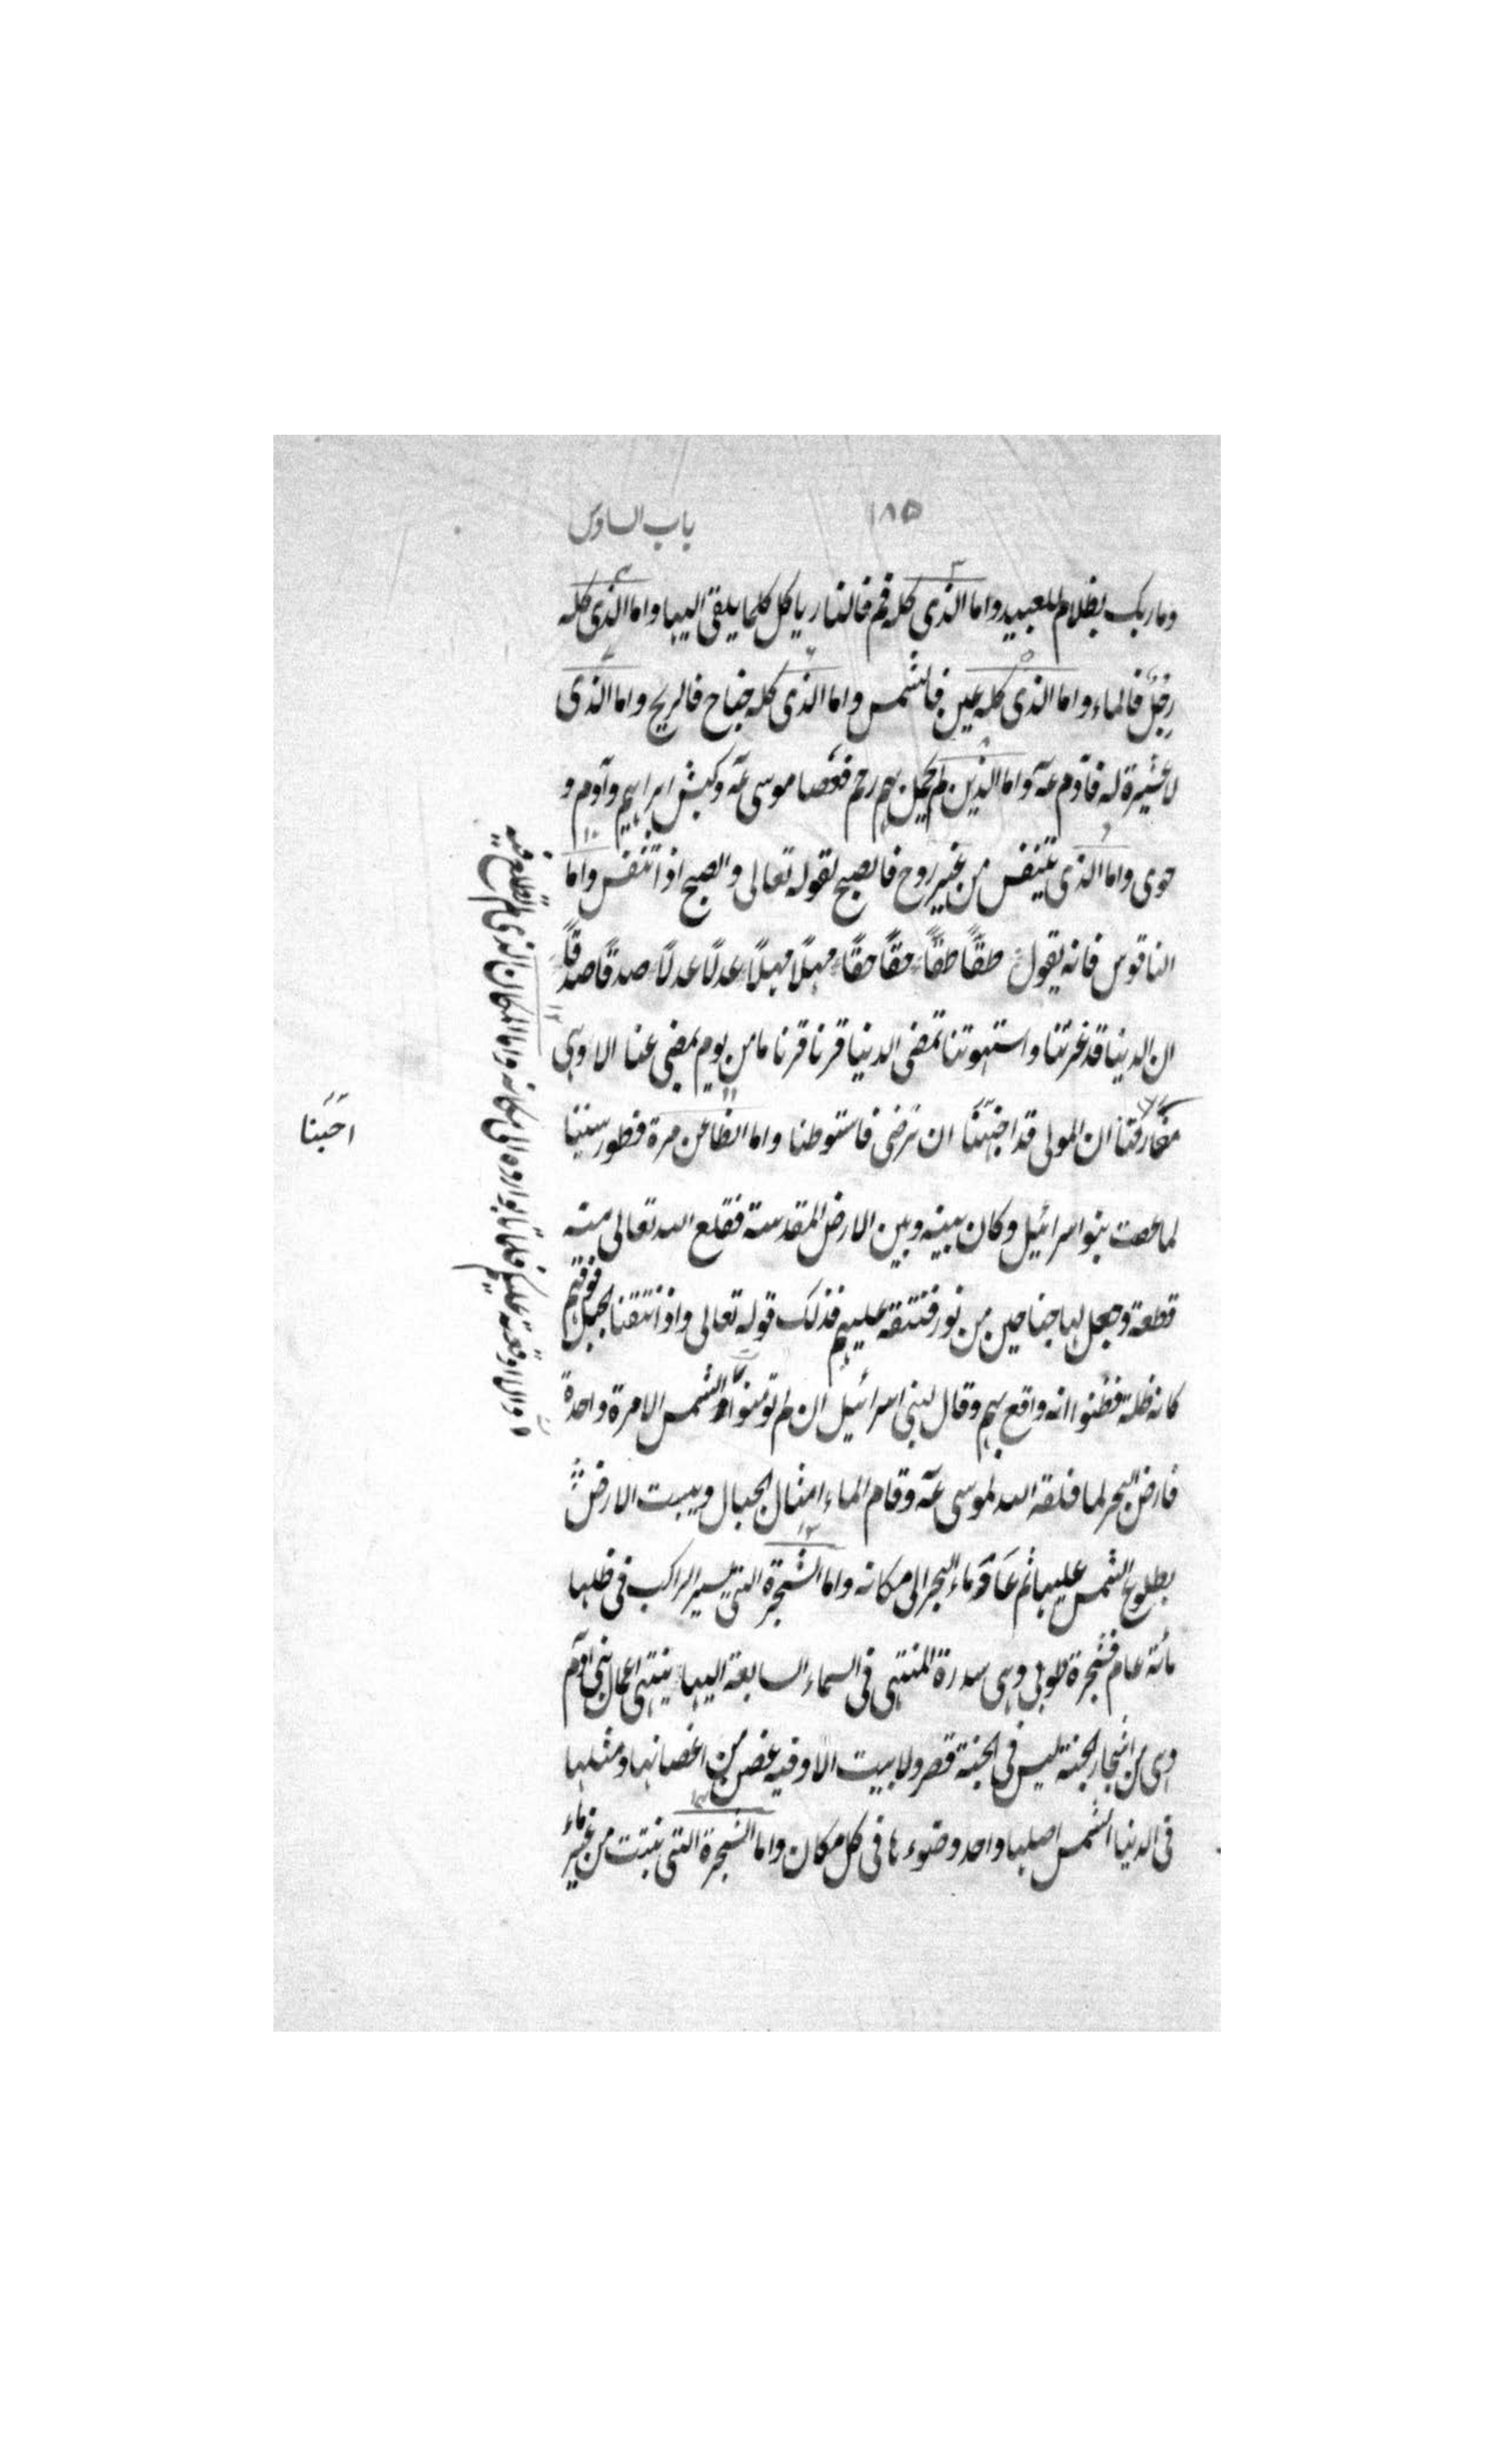 ١٨٥
باب السادس
وما ربک بظلام للعبید واما الذی کله فم فالنار یاکل کلما یلقی الیها واما الذی کله
رِجْلٌ فالماء واما الذی کله عین فالشمس واما الذی کله جناح فالریح واما الذی
لا عشیرة له فآدم عه واما الذین لم یحمل بهم رحم فعصا موسی عه وکبش ابراهیم وآدم و
حوی واما الذی یتنفس من غیر روح فالصبح لقوله تعالی والصبح اذا تنفس واما
الناقوس فانه یقول طقًّا طقًّا حقًّا حقًّا مهلًا مهلًا عدلًا عدلًا صدقًا صدقًا
ان الدنیا قد غرتنا واستهوتنا تمضی الدنیا قرنا قرنا ما من یوم یمضی عنا الا وهی
ان المولی قد اخبَرَنا ان نرضی فاستوطنا واما الظاعن مرة فطور سینا
لما عصت بنو اسرائیل وکان بینه وبین الارض المقدسة فقلع الله تعالی منه
قطعة وجعل لها جناحین من نور فنتقه علیهم فذلک قوله تعالی واذ انتقنا الجبل فوقهم
کانه ظلة فظنوا انه واقع بهم وقال لبنی اسرائیل ان لم تؤمنوا الشمس الا مرة واحدة
فارض البحر لما فلقه الله لموسی عه وقام الماء امثال الجبال ویبست الارض
بطلوع الشمس علیها ثم عَادَ ماء البحر الی مکانه واما الشجرة التی یسیر الراکب فی ظلها
مائة عام فشجرة طوبی وهی سدرة المنتهی فی السماء السابعة الیها ینتهی اعمال بنی آدم
وهی من اشجار الجنة لیس فی الجنة قصر ولا بیت الا وفیه غصن من اغصانها ومثلها
فی الدنیا الشمس اصلها واحد وضوءها فی کل مکان واما الشجرة التی نبتت من غیر ماء
والا اوقعته علیکم فلما تابوا رده الی مکانه واما المکان الذی لم تطلع علیه
احبّنا